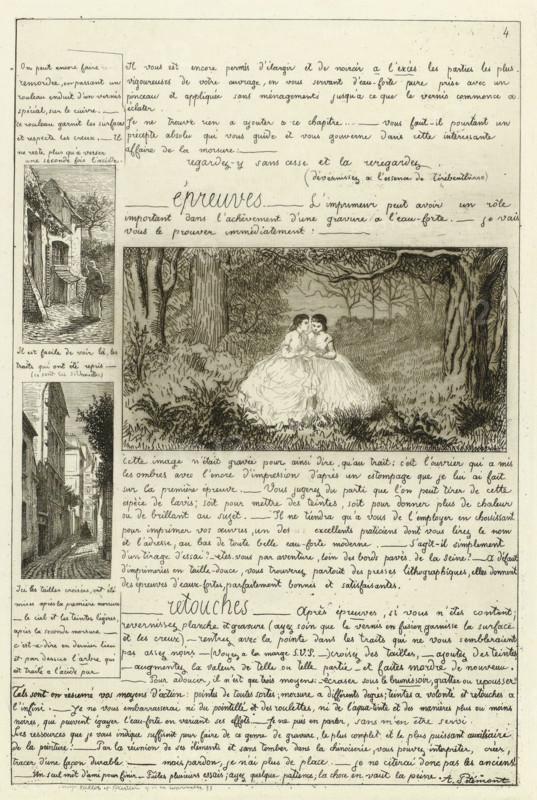 4
On peut encore faire
remordre, en passant un
rouleau enduit d'un vernis
spécial, sur le cuivre. —
ce rouleau garnit les surfaces
et respecte les creux. — Il
ne reste plus qu'à verser
une seconde fois l'acide.
Il est facile de voir là, les
traits qui ont été repris —
(ce sont les silhouettes)
Ici les tailles croisées, ont été
mises après la première morsure
— le ciel et les teintes légères,
après la seconde morsure —
c'est-à-dire en dernier lieu
et par dessus l'arbre, qui
est traité à l'acide pur
Il vous est encore permis d'élargir et de noircir à l'excès les parties les plus
vigoureuses de votre ouvrage, en vous servant d'eau-forte pure prise avec un
pinceau et appliquée sans ménagements jusqu'à ce que le vernis commence à
éclater.
Je ne trouve rien à ajouter à ce chapitre... — vous faut-il pourtant un
précepte absolu qui vous guide et vous gouverne dans cette intéressante
affaire de la morsure: —
regardez-y sans cesse et la reregardez.
(dévernissez à l'essence de térébenthine)
— épreuves — L'imprimeur peut avoir un rôle
important dans l'achèvement d'une gravure à l'eau-forte. — je vais
vous le prouver immédiatement: —
Cette image n'était gravée pour ainsi dire, qu'au trait; c'est l'ouvrier qui a mis
les ombres avec l'encre d'impression d'après un estompage que je lui ai fait
sur la première épreuve. — Vous jugerez du parti que l'on peut tirer de cette
espèce de lavis; soit pour mettre des teintes, soit pour donner plus de chaleur
ou de brillant au sujet. — Il ne tiendra qu'à vous de l'employer en choisissant
pour imprimer vos œuvres un des excellents praticiens dont vous lirez le nom
et l'adresse, au bas de toute belle eau-forte moderne. — S'agit-il simplement
d'un tirage d'essai? — êtes-vous par aventure, loin des bords pavés de la Seine? — A défaut
d'imprimeries en taille-douce, vous trouverez partout des presses lithographiques, elles donnent
des épreuves d'eaux-fortes, parfaitement bonnes et satisfaisantes.
retouches — Après épreuves, si vous n'êtes content,
revernissez planche et gravure (ayez soin que le vernis en fusion garnisse la surface
et les creux) — rentrez avec la pointe dans les traits qui ne vous sembleraient
pas assez noirs — (Voyez à la marge S.V.P. —) croisez des tailles, — ajoutez des teintes
— augmentez la valeur de telle ou telle partie, et faites mordre de nouveau. —
Pour adoucir, il n'est que trois moyens: écraser sous le brunissoir, gratter ou repousser
Tels sont en résumé vos moyens d'action: pointes de toutes sortes; morsure à différents degrés; teintes à volonté et retouches à
l'infini. — Je ne vous embarrasserai ni du pointillé et des roulettes, ni de l'aqua-tinte et des manières plus ou moins
noires, qui peuvent égayer l'eau-forte en variant ses effets. — Je ne puis en parler, sans m'en être servi.
Les ressources que je vous indique suffiront pour faire de ce genre de gravure, le plus complet et le plus puissant auxiliaire
de la peinture! — Par la réunion de ses éléments et sans tomber dans la chinoiserie, vous pouvez, interpréter, créer,
tracer d'une façon durable — mais pardon, je n'ai plus de place. — je ne citerai donc pas les anciens
— Un seul mot d'ami pour finir — Faites plusieurs essais; ayez quelque patience; la chose en vaut la peine. A. P. Martial